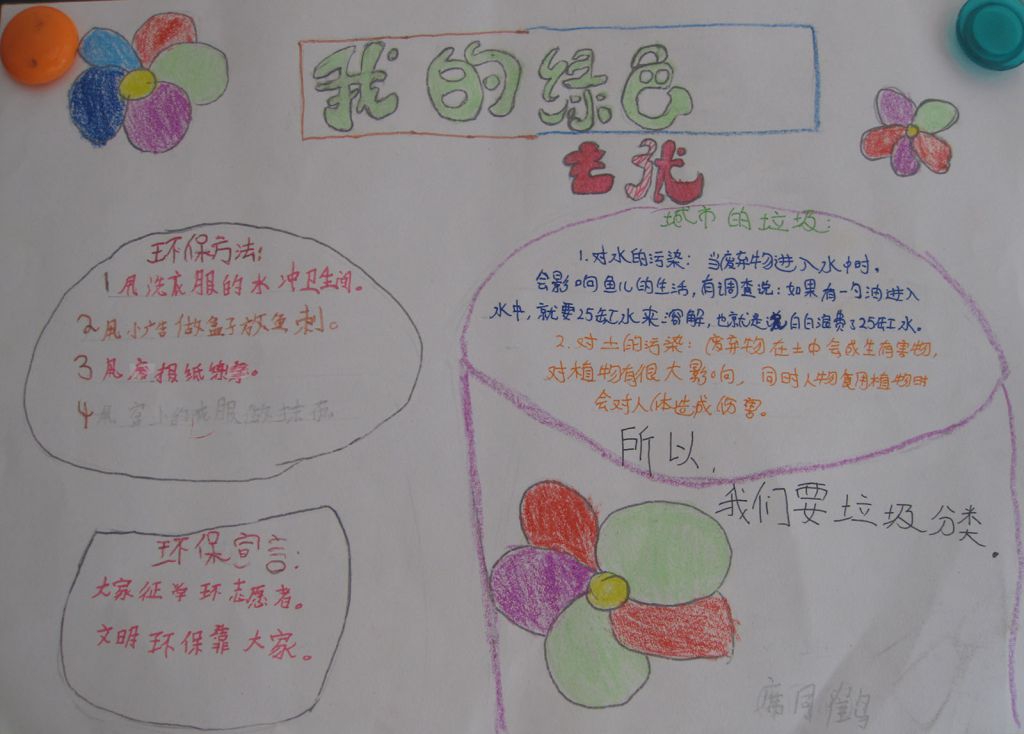 我的绿色
主张
环保方法:
1用洗衣服的水冲卫生间。
2用小广告做盒子放鱼刺。
3用废报纸练字。
4用穿小的衣服做抹布
环保宣言:
大家征华环志愿者。
文明环保靠大家。
城市的垃圾:
1.对水的污染:当废弃物进入水中时,
会影响鱼儿的生活,有调查说:如果有一勺油进入
水中,就要25缸水来溶解,也就是说白白浪费了25缸水。
2.对土的污染:废弃物在土中会成生有害物,
对植物有很大影响,同时人物食用植物时
会对人体造成伤害。
所以,
我们要垃圾分类.